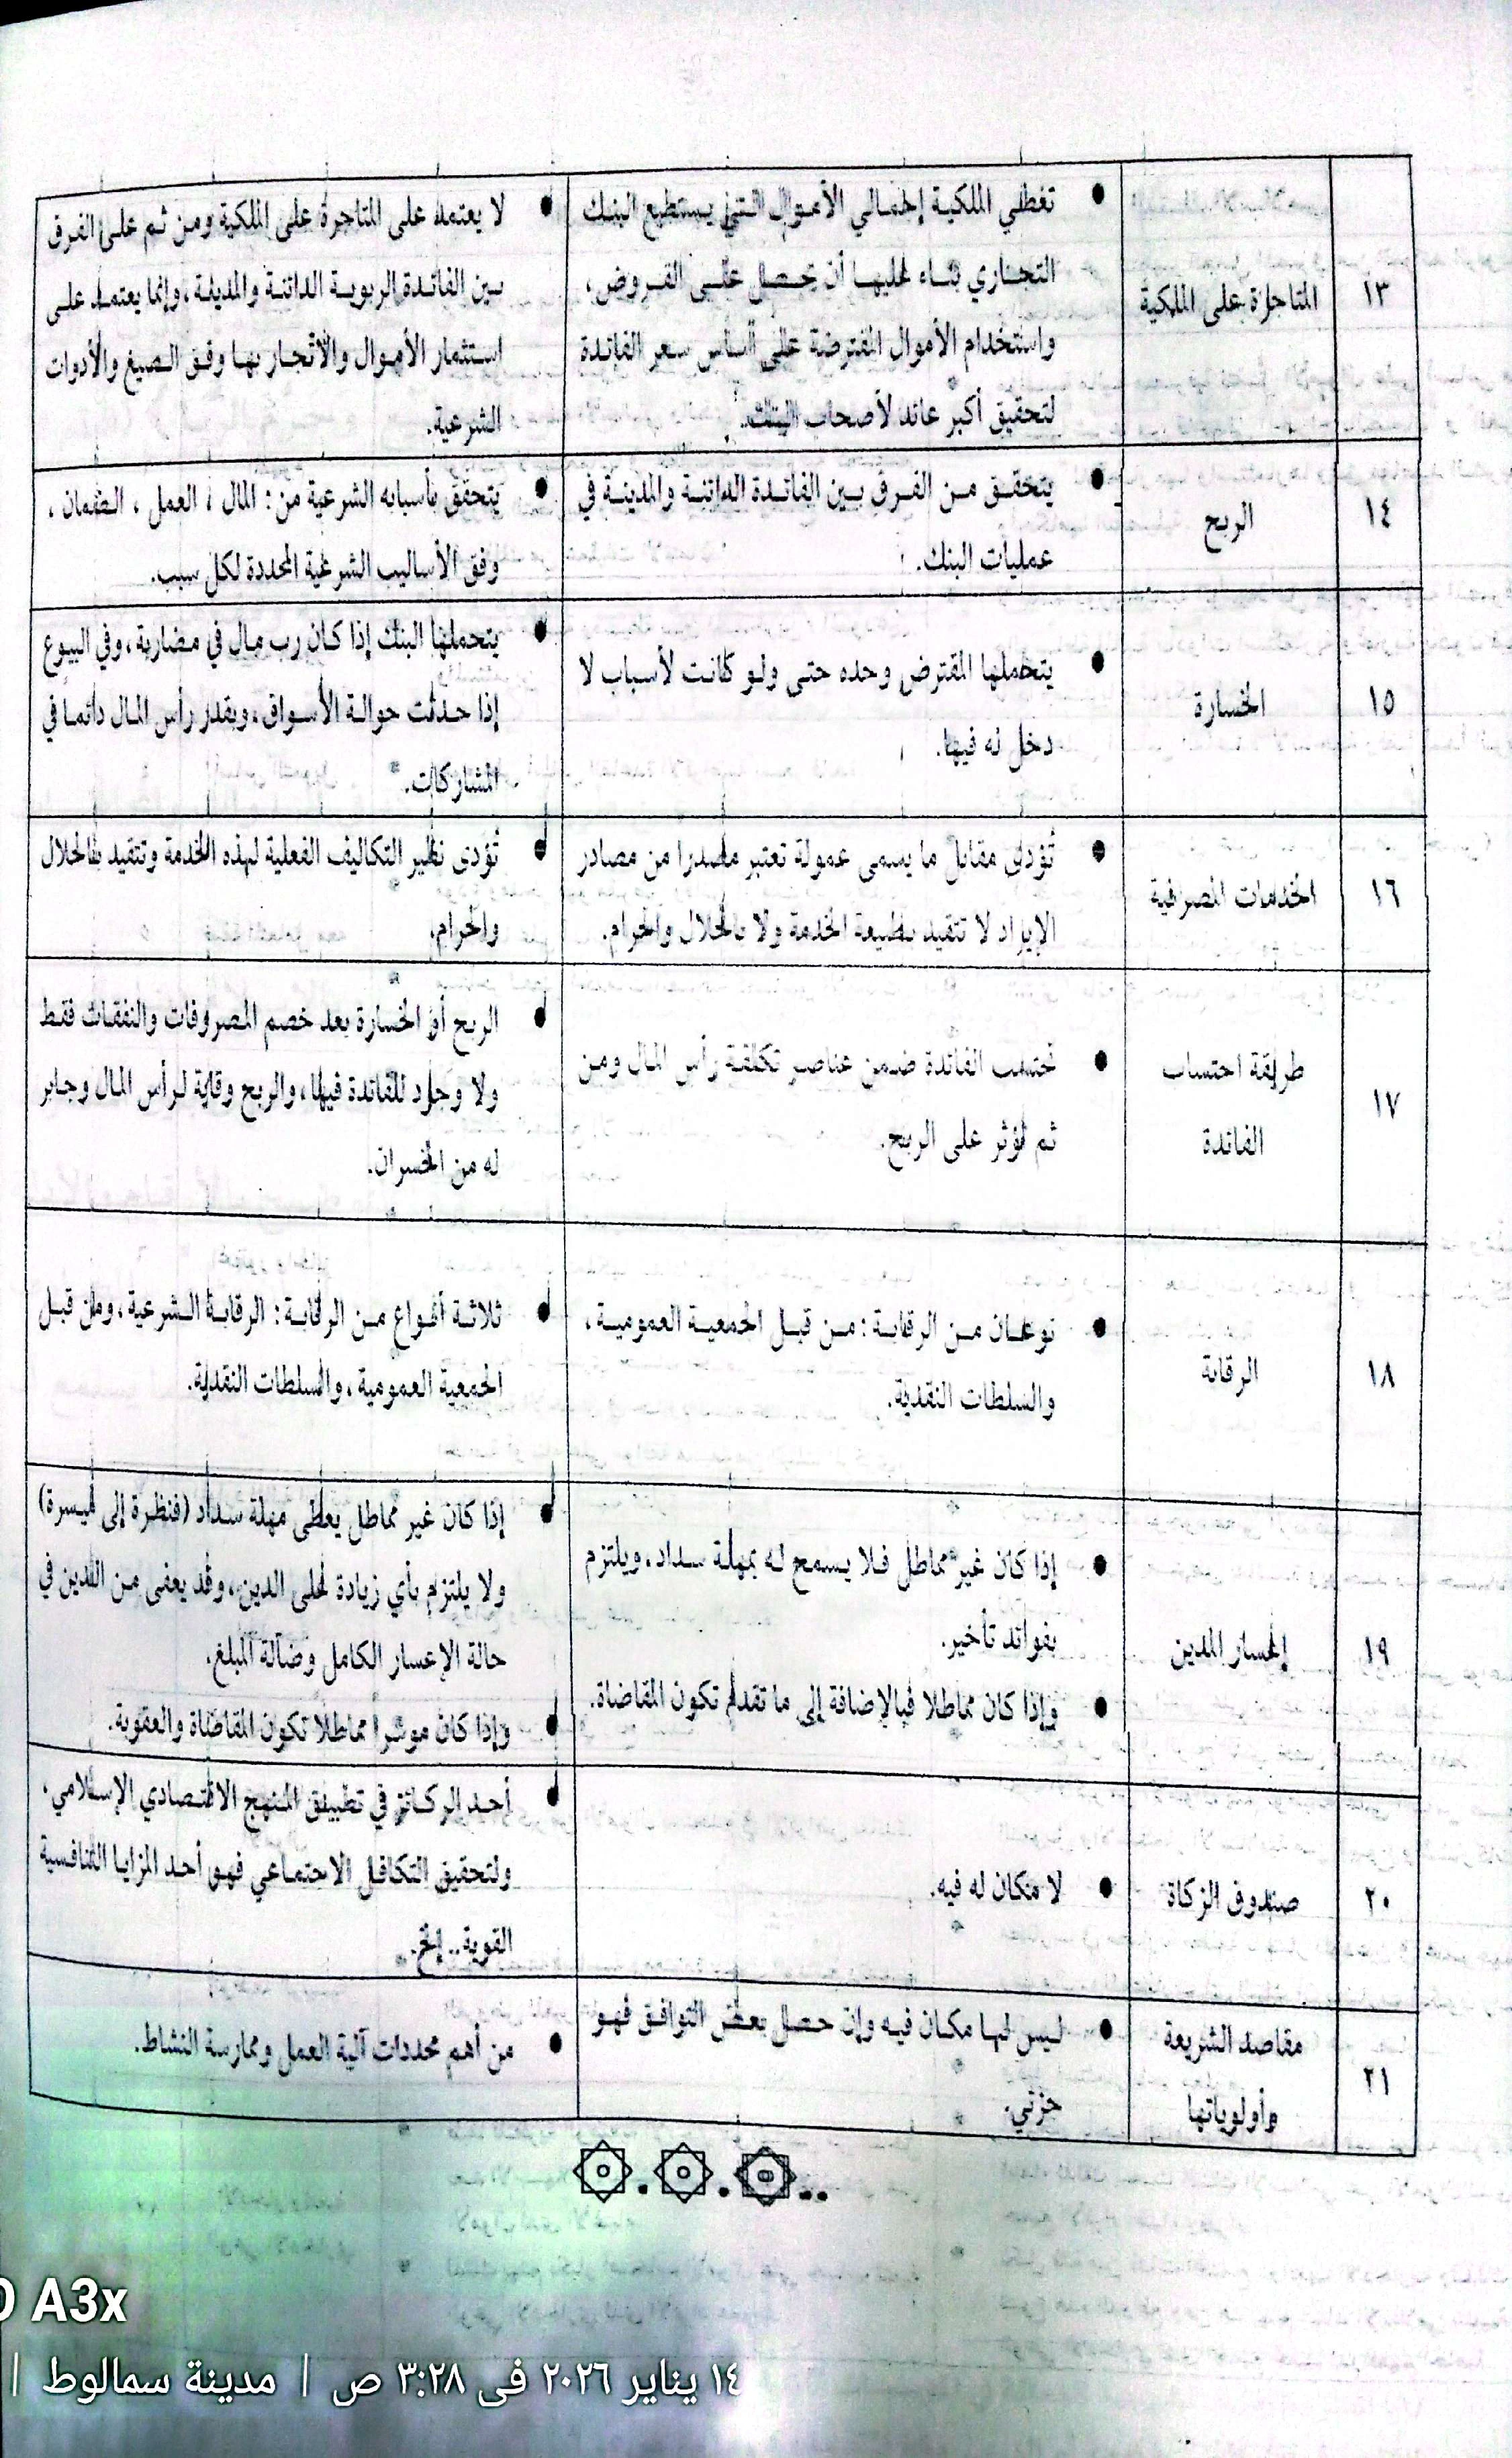 ١٣
المتاجرة على الملكية
• تغطي الملكية إجمالي الأموال التي يستطيع البنك
التجاري بناء عليها أن يحصل على القروض،
واستخدام الأموال المقترضة على أساس سعر الفائدة
لتحقيق أكبر عائد لأصحاب البنك.
• لا يعتمد على المتاجرة على الملكية ومن ثم على الفرق
بين الفائدة الربوية الدائنة والمدينة، وإنما يعتمد على
استثمار الأموال والاتجار بها وفق الصيغ والأدوات
الشرعية.
١٤
الربح
• يتحقق من الفرق بين الفائدة الدائنة والمدينة في
عمليات البنك.
• يتحقق بأسبابه الشرعية من: المال، العمل، الضمان،
وفق الأساليب الشرعية المحددة لكل سبب.
١٥
الخسارة
• يتحملها المقترض وحده حتى ولو كانت لأسباب لا
دخل له فيها.
• يتحملها البنك إذا كان رب مال في مضاربة، وفي البيوع
إذا حدثت حوالة الأسواق، وبقدر رأس المال دائما في
المشاركات.
١٦
الخدمات المصرفية
• تؤدى مقابل ما يسمى عمولة تعتبر مصدرا من مصادر
الإيراد لا تتقيد بطبيعة الخدمة ولا بالحلال والحرام.
• تؤدى نظير التكاليف الفعلية لهذه الخدمة وتتقيد بالحلال
والحرام.
١٧
طريقة احتساب
الفائدة
• تحتسب الفائدة ضمن عناصر تكلفة رأس المال ومن
ثم تؤثر على الربح.
• الربح أو الخسارة بعد خصم المصروفات والنفقات فقط
ولا وجود للفائدة فيها، والربح وقاية لرأس المال وجابر
له من الخسران.
١٨
الرقابة
• نوعان من الرقابة: من قبل الجمعية العمومية،
والسلطات النقدية.
• ثلاثة أنواع من الرقابة: الرقابة الشرعية، ومن قبل
الجمعية العمومية، والسلطات النقدية.
١٩
إعسار المدين
• إذا كان غير مماطل فلا يسمح له بمهلة سداد، ويلتزم
بفوائد تأخير.
• وإذا كان مماطلا فبالإضافة إلى ما تقدم تكون المقاضاة.
• إذا كان غير مماطل يعطى مهلة سداد (فنظرة إلى ميسرة)
ولا يلتزم بأي زيادة على الدين، وقد يعفى من الدين في
حالة الإعسار الكامل وضآلة المبلغ.
• وإذا كان موشرا مماطلا تكون المقاضاة والعقوبة.
٢٠
صندوق الزكاة
• لا مكان له فيه.
• أحد الركائز في تطبيق المنهج الاقتصادي الإسلامي.
ولتحقيق التكافل الاجتماعي فهو أحد المزايا التنافسية
القوية.. إلخ.
٢١
مقاصد الشريعة
وأولوياتها
• ليس لها مكان فيه وإن حصل بعض التوافق فهو
جزئي.
• من أهم محددات آلية العمل وممارسة النشاط.
A3x
١٤ يناير ٢٠٢٦ فى ٣:٢٨ ص | مدينة سمالوط |